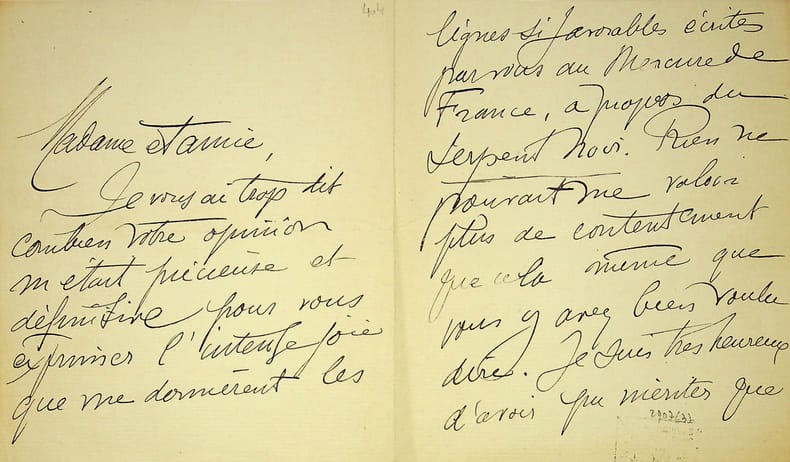 404
Madame et amie,
Je vous ai trop dit
combien votre opinion
m'était précieuse et
définitive pour vous
exprimer l'intense joie
que me donnèrent les
lignes si favorables écrites
par vous au Mercure de
France, à propos du
Serpent Noir. Rien ne
pouvait me valoir
plus de contentement
que cela même que
vous y avez bien voulu
dire. Je suis très heureux
d'avoir pu mériter que